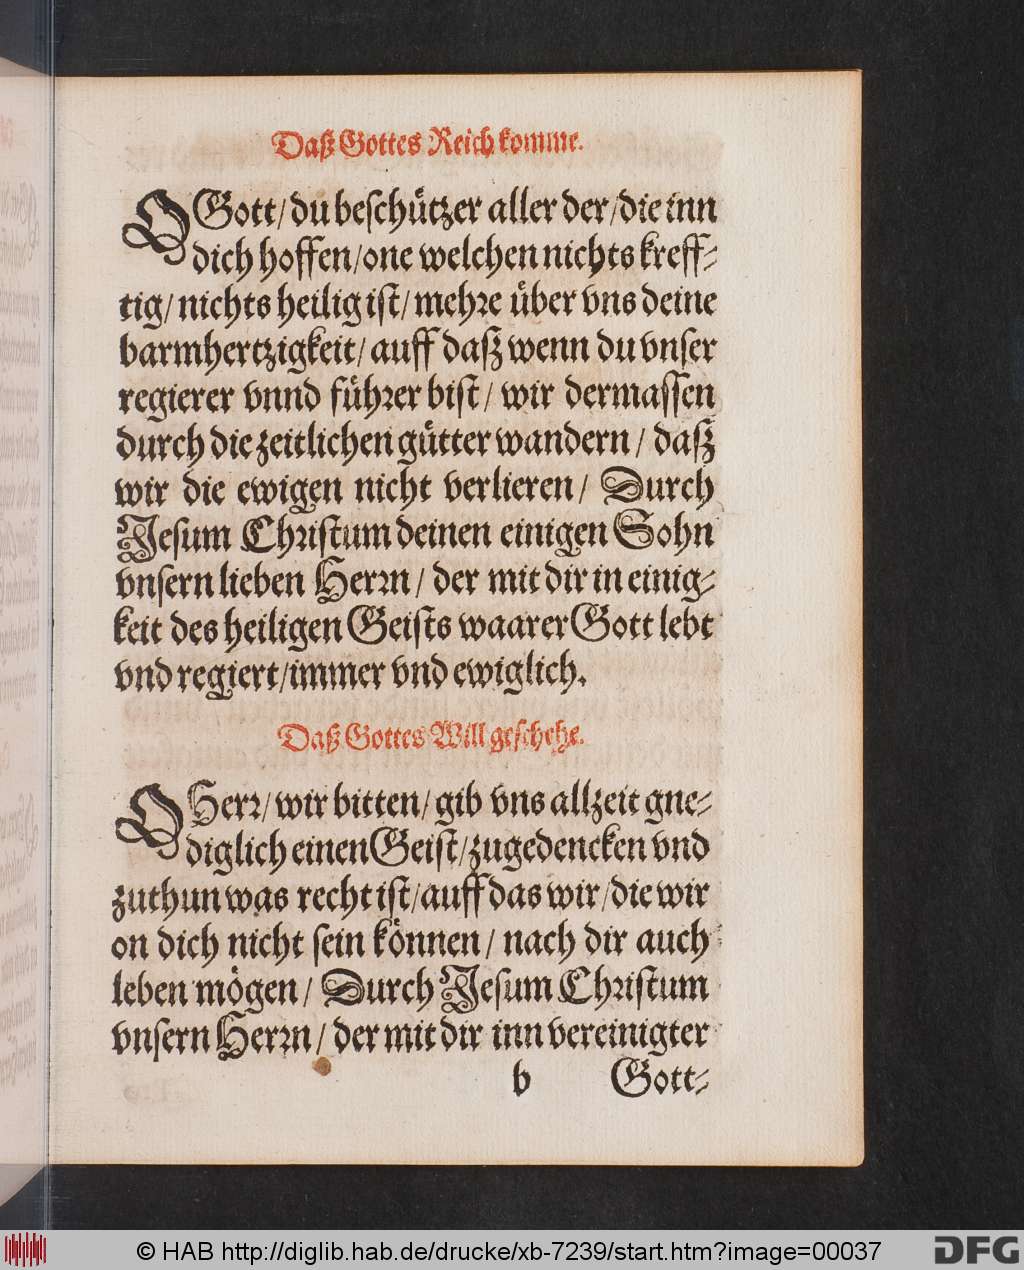 Daß Gottes Reich komme.
O Gott/ du beschützer aller der/ die inn
dich hoffen/ one welchen nichts kreff-
tig/ nichts heilig ist/ mehre über vns deine
barmhertzigkeit/ auff daß wenn du vnser
regierer vnnd führer bist/ wir dermassen
durch die zeitlichen gütter wandern/ daß
wir die ewigen nicht verlieren/ Durch
Jesum Christum deinen einigen Sohn
vnsern lieben Herrn/ der mit dir in einig-
keit des heiligen Geists waarer Gott lebt
vnd regiert/ immer vnd ewiglich.
Daß Gottes Will geschehe.
O Herr/ wir bitten/ gib vns allzeit gne-
diglich einen Geist/ zugedencken vnd
zuthun was recht ist/ auff das wir/ die wir
on dich nicht sein können/ nach dir auch
leben mögen/ Durch Jesum Christum
vnsern Herrn/ der mit dir inn vereinigter
b Gott-
© HAB http://diglib.hab.de/drucke/xb-7239/start.htm?image=00037
DFG